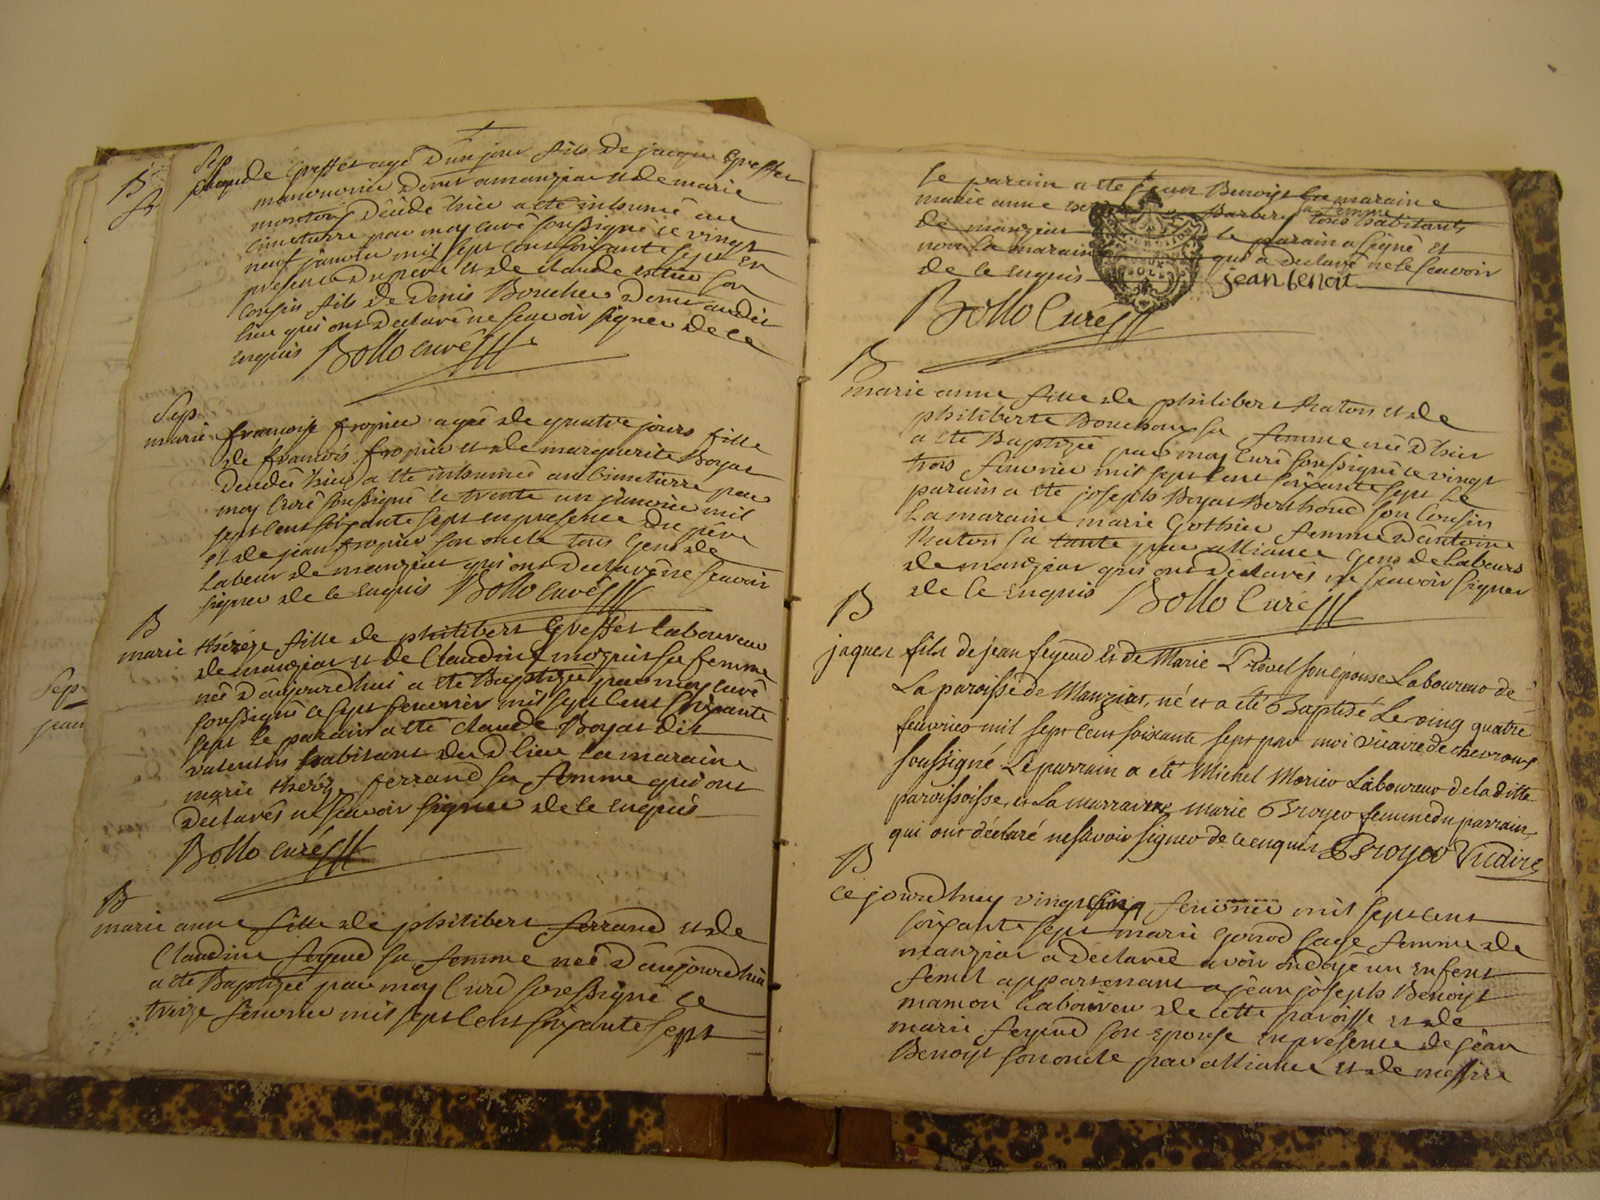 B
Sep
Claude Greffet agé d'un jour fils de jacque Greffet
manouvrier demt a manziat et de marie
décédé hier a été inhumé au
cimetierre par moy curé soussigné le vingt
neuf janvier mil sept cent soixante sept en
presence du pere et de claude son
cousin fils de Denis Boucher demt audit
lieu qui ont declaré ne scavoir signer de ce
enquis Bollo curé
Sep
marie francoise fropier agée de quatre jours fille
de francois fropier et de marguerite Boyat
décédée hier a été inhumée au cimetierre par
moy curé soussigné le trente un janvier mil
sept cent soixante sept en presence du père
et de jean fropier son oncle tous gens de
labeur de manziat qui ont declaré ne scavoir
signer de ce enquis Bollo curé
B
marie thérèze fille de philibert Greffet laboureur
de manziat et de Claudine sa femme
née d'aujourdhui a été Baptizée par moy curé
soussigné ce sept fevrier mil sept cent soixante
sept le parain a été claude Boyat dit
valentin habitant du d lieu la maraine
marie thérèze ferrand sa femme qui ont
declarés ne scavoir signer de ce enquis
Bollo curé
B
marie anne fille de philibert ferrand et de
Claudine feyeud sa femme née d'aujourdhui
a été Baptizée par moy curé soussigné le
treize fevrier mil sept cent soixante sept
Sep
jean
le parain a été jean Benoist la maraine
marie anne Barberet sa femme tous habitants
de manziat le parain a signé et
non la maraine qui a declaré ne le scavoir
de ce enquis jean benoit
Bollo Curé
B
marie anne fille de philibert Raton et de
philiberte Bouchoux sa femme née d'hier
a été Baptizée par moy curé soussigné le vingt
trois fevrier mil sept cent soixante sept le
parain a été joseph Boyat Berthoud son cousin
La maraine marie Gothier femme d'antoine
Raton sa tante par alliance gens de labeurs
de manziat qui ont declarés ne scavoir signer
de ce enquis Bollo Curé
B
jaques fils de jean feyeud et de Marie Provel son épouse Laboureur de
La paroisse de Manziat, né et a été Baptisé Le vingt quatre
feuvrier mil sept cent soixante sept par moi vicaire de chevroux
soussigné Le parrain a eté Michel Morier Laboureur de la ditte
paroissoisse, et La marraine marie Broyer femme du parrain,
qui ont déclaré ne savoir signer de ce enquis Broyer Vicaire
B
Ce jourdhuy vingt cinq fevrier mil sept cent
soixante sept marie gonod sage femme de
manziat a déclarée avoir ondoyé un enfent
femel appartenant a jean joseph Benoist
manon Laboureur de cette paroisse et de
marie feyeud son epouse en presence de jean
Benoist son oncle par alliance et de messire